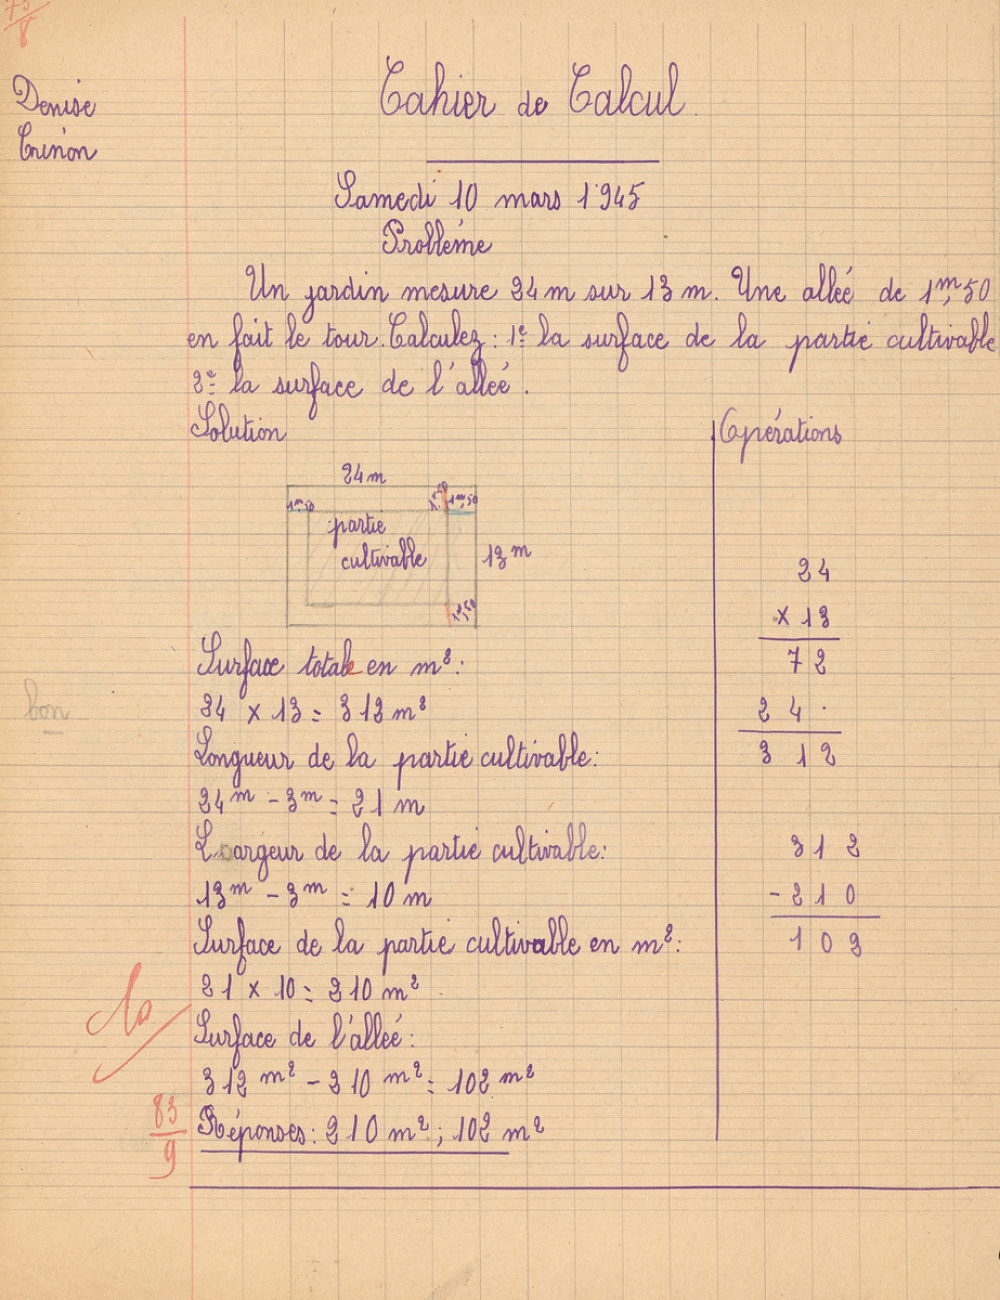 75/8
Denise
Crinon
Cahier de Calcul.
Samedi 10 mars 1945
Problème
Un jardin mesure 24 m sur 13 m. Une alleé de 1m,50
en fait le tour. Calculez : 1e la surface de la partie cultivable
2e la surface de l'alleé.
Solution
Opérations
24 m
1m,50 1m,50 1m,50
partie
cultivable
13 m
1m,50
24
x 13
72
24 .
312
Surface totale en m² :
24 x 13 = 312 m²
bon
Longueur de la partie cultivable :
24 m - 3 m = 21 m
Largeur de la partie cultivable :
13 m - 3 m = 10 m
312
- 210
102
Surface de la partie cultivable en m² :
21 x 10 = 210 m²
Surface de l'alleé :
312 m² - 210 m² = 102 m²
Réponses : 210 m² ; 102 m²
83/9